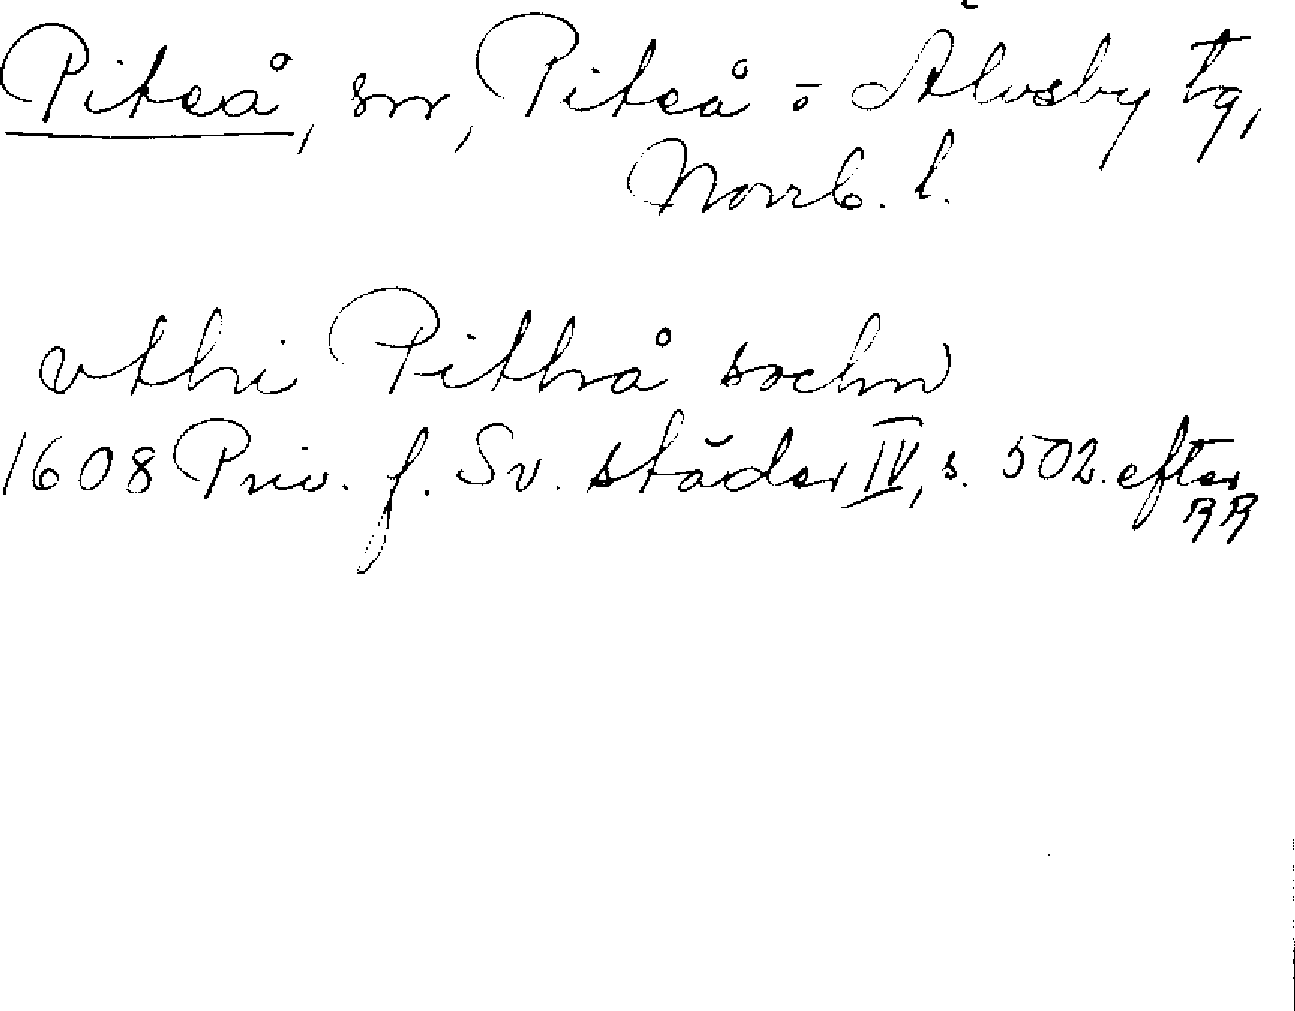 Piteå, sn, Piteå o Älvsby tg,
Norrb. l.
vthi Pithå sochn
1608 Priv. f. Sv. städer IV, s. 502. efter
RR